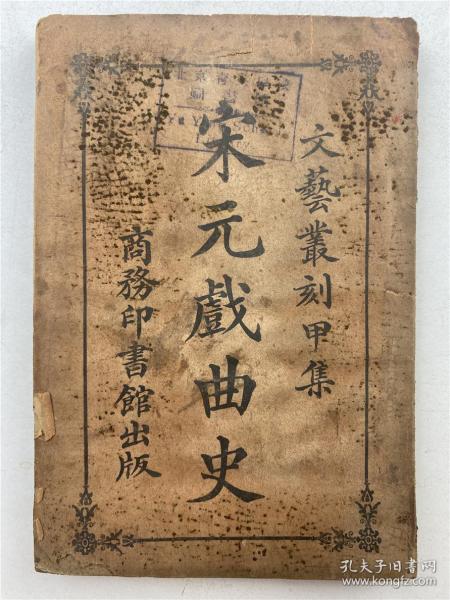 文藝叢刻甲集
宋元戲曲史
商務印書館出版
孔夫子旧书网
www.kongfz.com